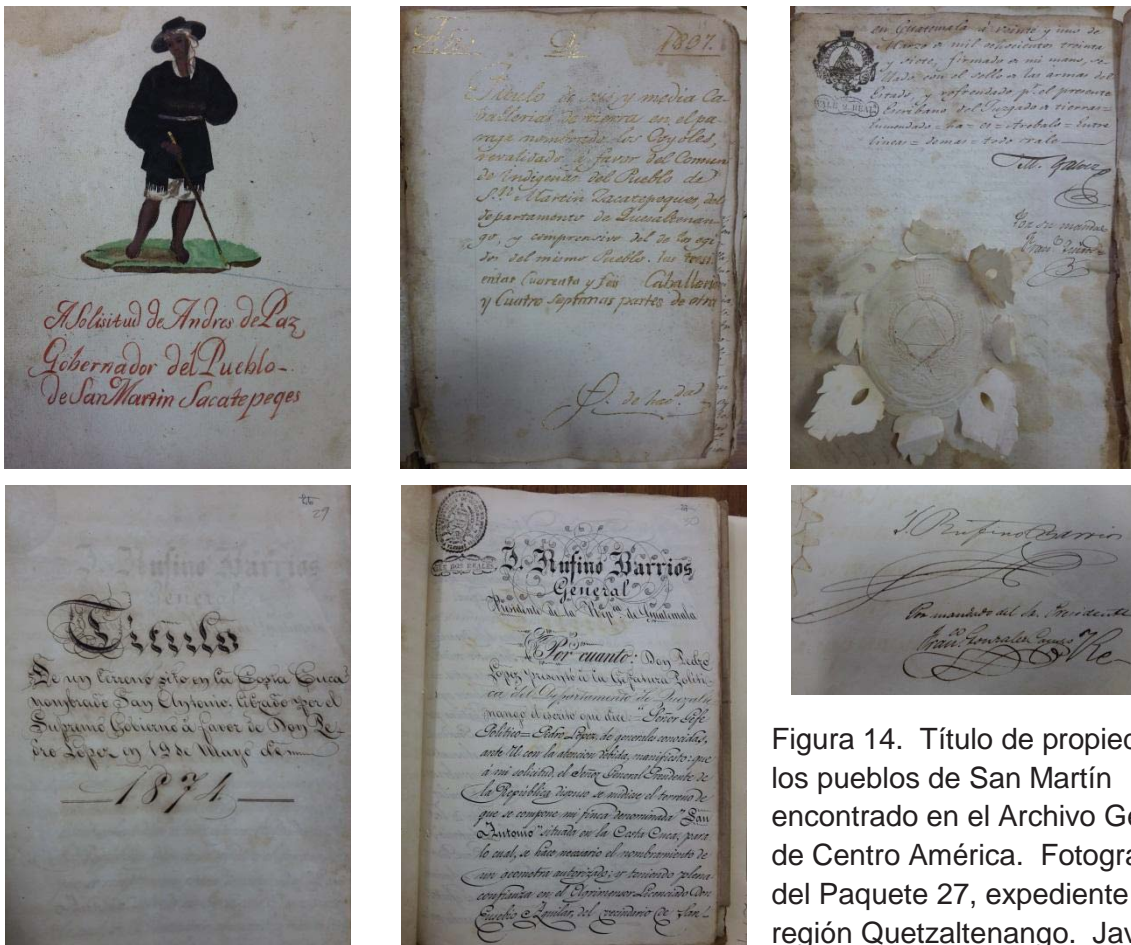 A Solisitud de Andres de Paz
Gobernador del Pueblo-
de San Martin Sacatepeqes
1807.
Titulo de seis, y media Ca-
ballerias de tierra en el pa-
rage nombrado los Coyoles,
revalidado à favor del Comun
de Indigenas del Pueblo de
Sn. Martin Zacatepeques, del
departamento de Quesaltenan-
go, y comprensivo del de los egi-
dos del mismo Pueblo.
Caballerias
y Cuatro Septimas partes de otra
en Guatemala à veinte y uno de
Marzo de mil ochocientos treinta
y siete, firmado de mi mano, se-
llado con el sello de las armas del
Estado, y refrendado pr. el presente
Escribano del Juzgado de tierras=
lineas= demas= todo vale
M. Galvez
Por su mandado
29
Titulo
De un terreno sito en la Costa Cuca
nombrado San Antonio, librado por el
Supremo Gobierno à favor de Don Pe-
dro Lopez en 19 de Mayo de
1874.
30
J. Rufino Barrios
General
Presidente de la Repca. de Guatemala
Por cuanto: Don Pedro
Lopez presentó à la Gefatura Politi-
ca del Departamento de Quezalte-
nango el escrito que dice "Señor Gefe
Politico= Pedro Lopez, de generales conocidas,
ante Ud. con la atencion debida, manifiesto: que
à mi solicitud, el Señor General Presidente de
la República dispuso se midiese el terreno de
que se compone mi finca denominada "San
Antonio" situada en la Costa Cuca, para
lo cual, se hace necesario el nombramiento de
un geometra autorizado; y teniendo plena
confianza en el Agrimensor Licenciado Don
Eusebio Aguilar, del vecindario de San
J. Rufino Barrios
Por mandado del Sr. Presidente
Figura 14. Título de propied
los pueblos de San Martín
encontrado en el Archivo Ge
de Centro América. Fotogra
del Paquete 27, expediente
región Quetzaltenango. Jav